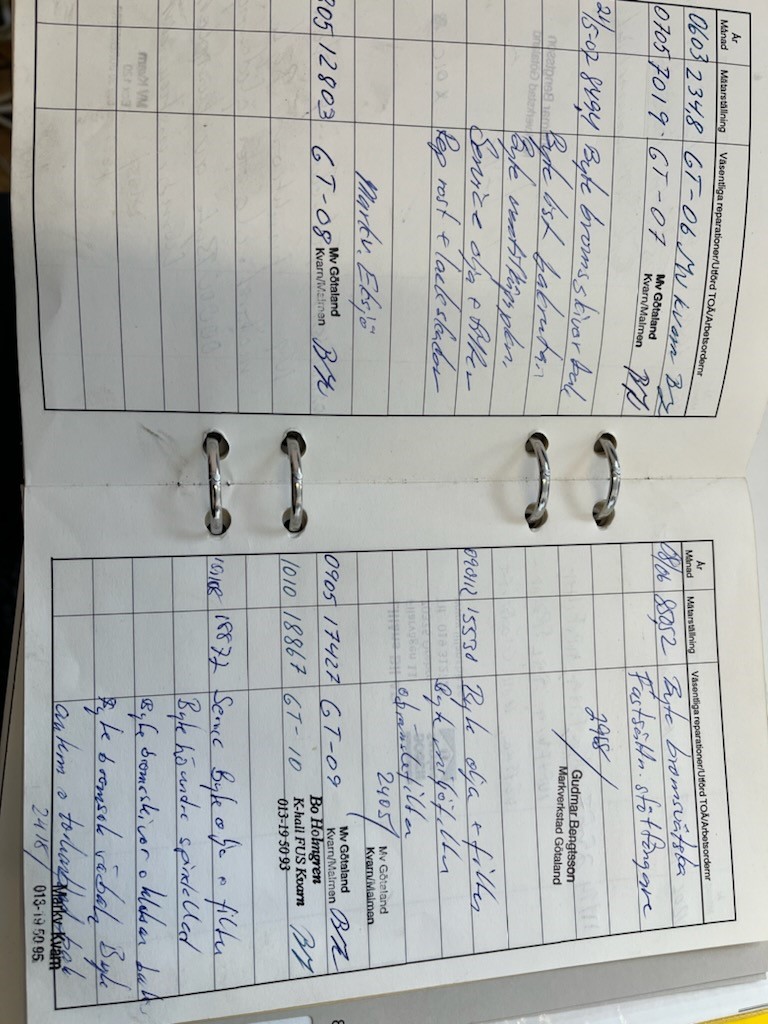 År
Månad
Mätarställning
Väsentliga reparationer/Utförd TOÅ/Arbetsordernr
0603 2348 GT-06 Mv Kvarn
0705 7019 GT-07
Mv Götaland
Kvarn/Malmen
21/5-07 8494 Byte bromsskivor bak
Byte list bakrutan,
Byte
Service olja + filter
Rep rost + lackskador
Markv. Eksjö
805 12803 GT-08
Mv Götaland
Kvarn/Malmen
År
Månad
Mätarställning
Väsentliga reparationer/Utförd TOÅ/Arbetsordernr
Byte bromsvätska
Fastsättn. stötfångare
2968/
Gudmar Bengtsson
Markverkstad Götaland
Byte olja + filter
Byte
2405/
Mv Götaland
Kvarn/Malmen
0905 17427 GT-09
Mv Götaland
Kvarn/Malmen
1010 18867 GT-10
Bo Holmgren
K-hall FUS Kvarn
013-19 50 93
18877 Byte olja o filter
Byte hö undre spindelled
Byte bromsskivor o klossar bak
Byte bromsok Byte
2418/
Markv Kvarn
013-19 50 95